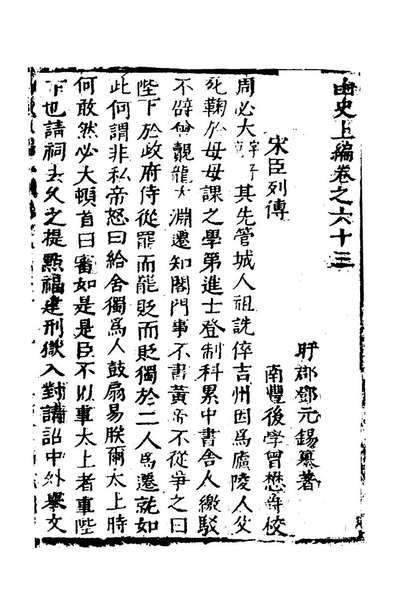 函史上編卷之六十三
盱郡鄧元錫纂著
南豐後學曾懋爵校
宋臣列傳
周必大 其先管城人祖詵倅吉州因為廬陵人父
死鞠於母母課之學第進士登制科累中書舍人繳駁
不辟曾覿龍大淵遷知閤門事不書黃帝不從爭之曰
陛下於政府侍從罷而罷貶而貶獨於二人為遷就如
此何謂非私帝怒曰給舍獨為人鼓扇易朕爾太上時
何敢然必大頓首曰審如是是臣不以事太上者事陛
下也請祠去久之提點福建刑獄入對請詔中外舉文